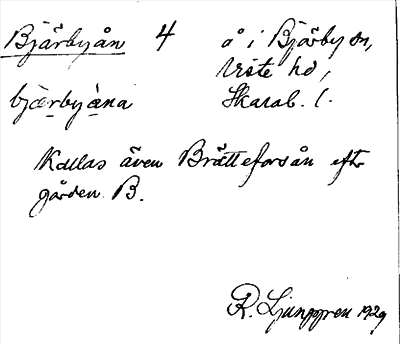 Bjärbyån 4 å i Bjärby sn,
Viste hd,
bjærbyàna Skarab. l.
Kallas även Brätteforsån eftr
gården B.
R. Ljunggren 1929